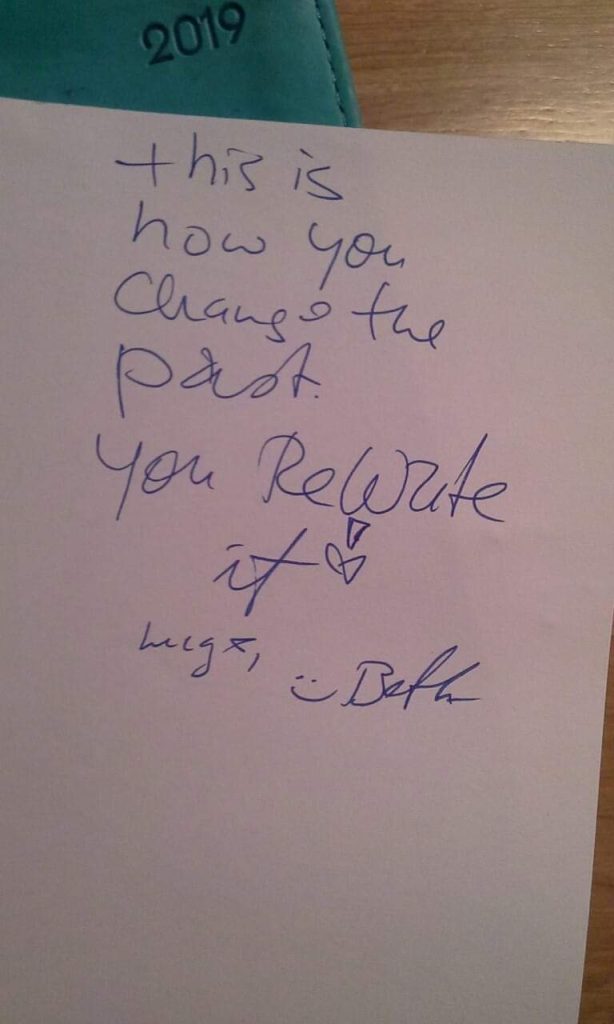 2019
this is
how you
change the
past.
you ReWrite
it!
hugs,
:) Beth